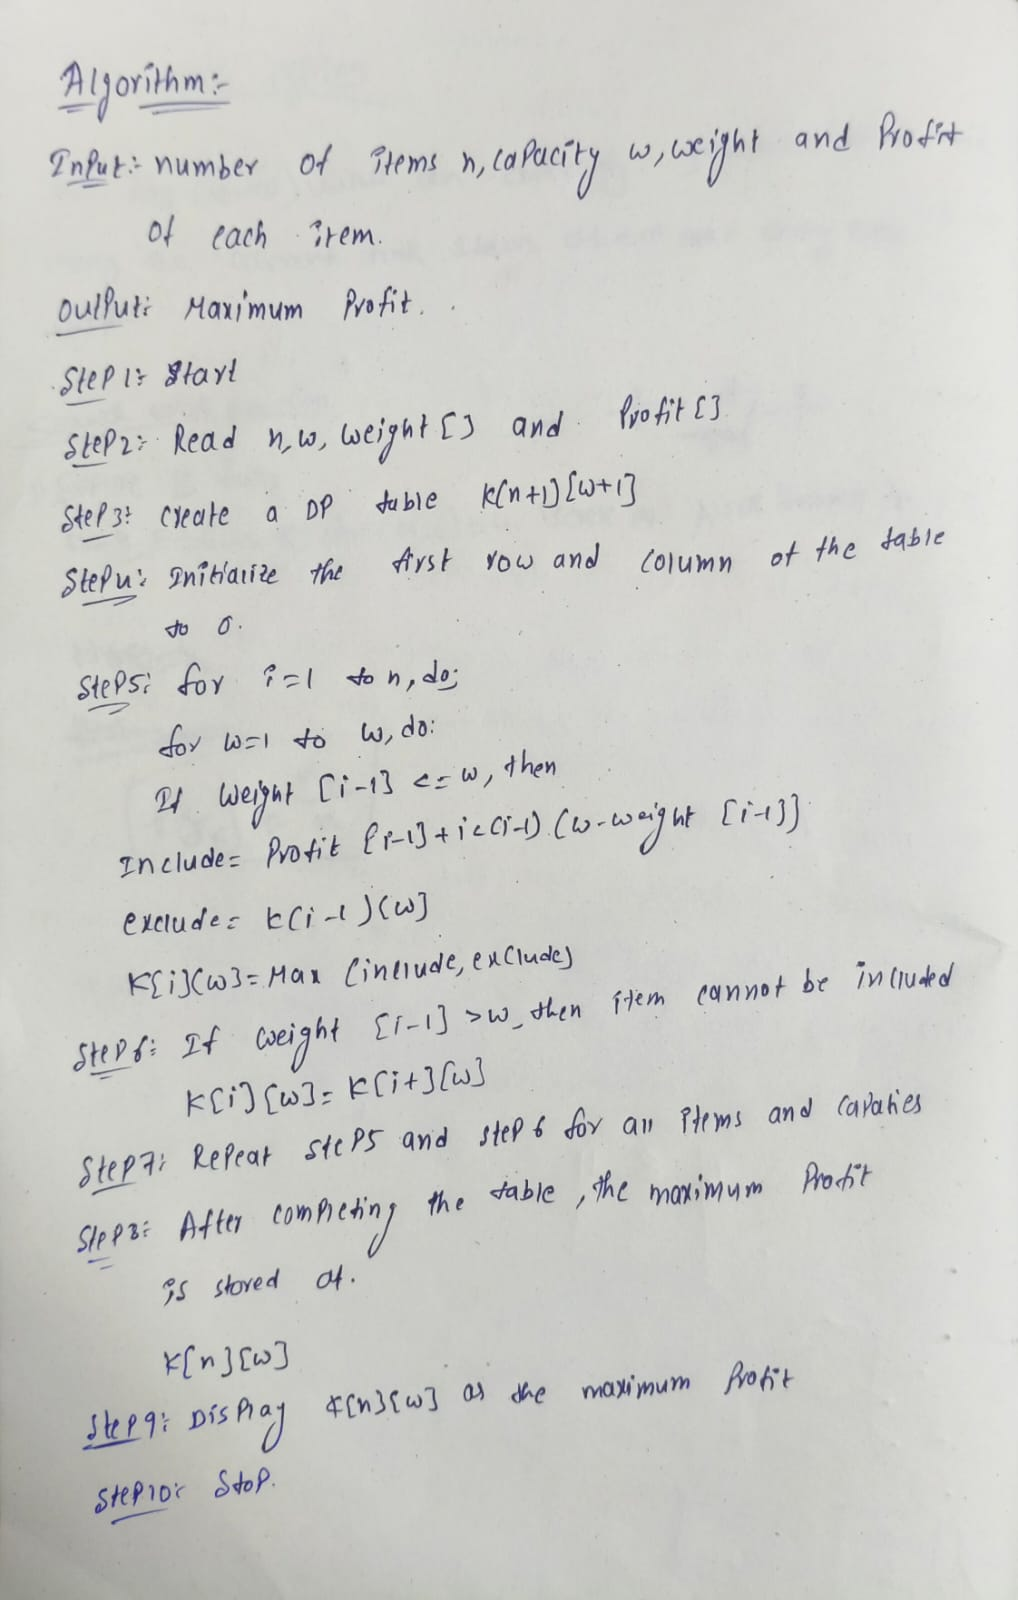 Algorithm:-
Input:- number of items n, capacity w, weight and Profit
of each item.
Output:- Maximum Profit.
Step 1:- Start
Step 2:- Read n, w, weight [] and Profit []
Step 3:- Create a DP table K[n+1][w+1]
Step 4:- Initialize the first row and column of the table
to 0.
Step 5:- for i=1 to n, do;
for w=1 to w, do:
If weight [i-1] <= w, then
Include = Profit [i-1] + K[i-1] (w-weight [i-1])
exclude = K(i-1)(w]
K[i](w] = Max (include, exclude)
Step 6:- If weight [i-1] > w, then item cannot be included
K[i][w] = K[i+][w]
Step 7:- Repeat step 5 and step 6 for all items and capaties
Step 8:- After completing the table, the maximum Profit
is stored at.
K[n][w]
Step 9:- Display K[n][w] as the maximum Profit
Step 10:- Stop.